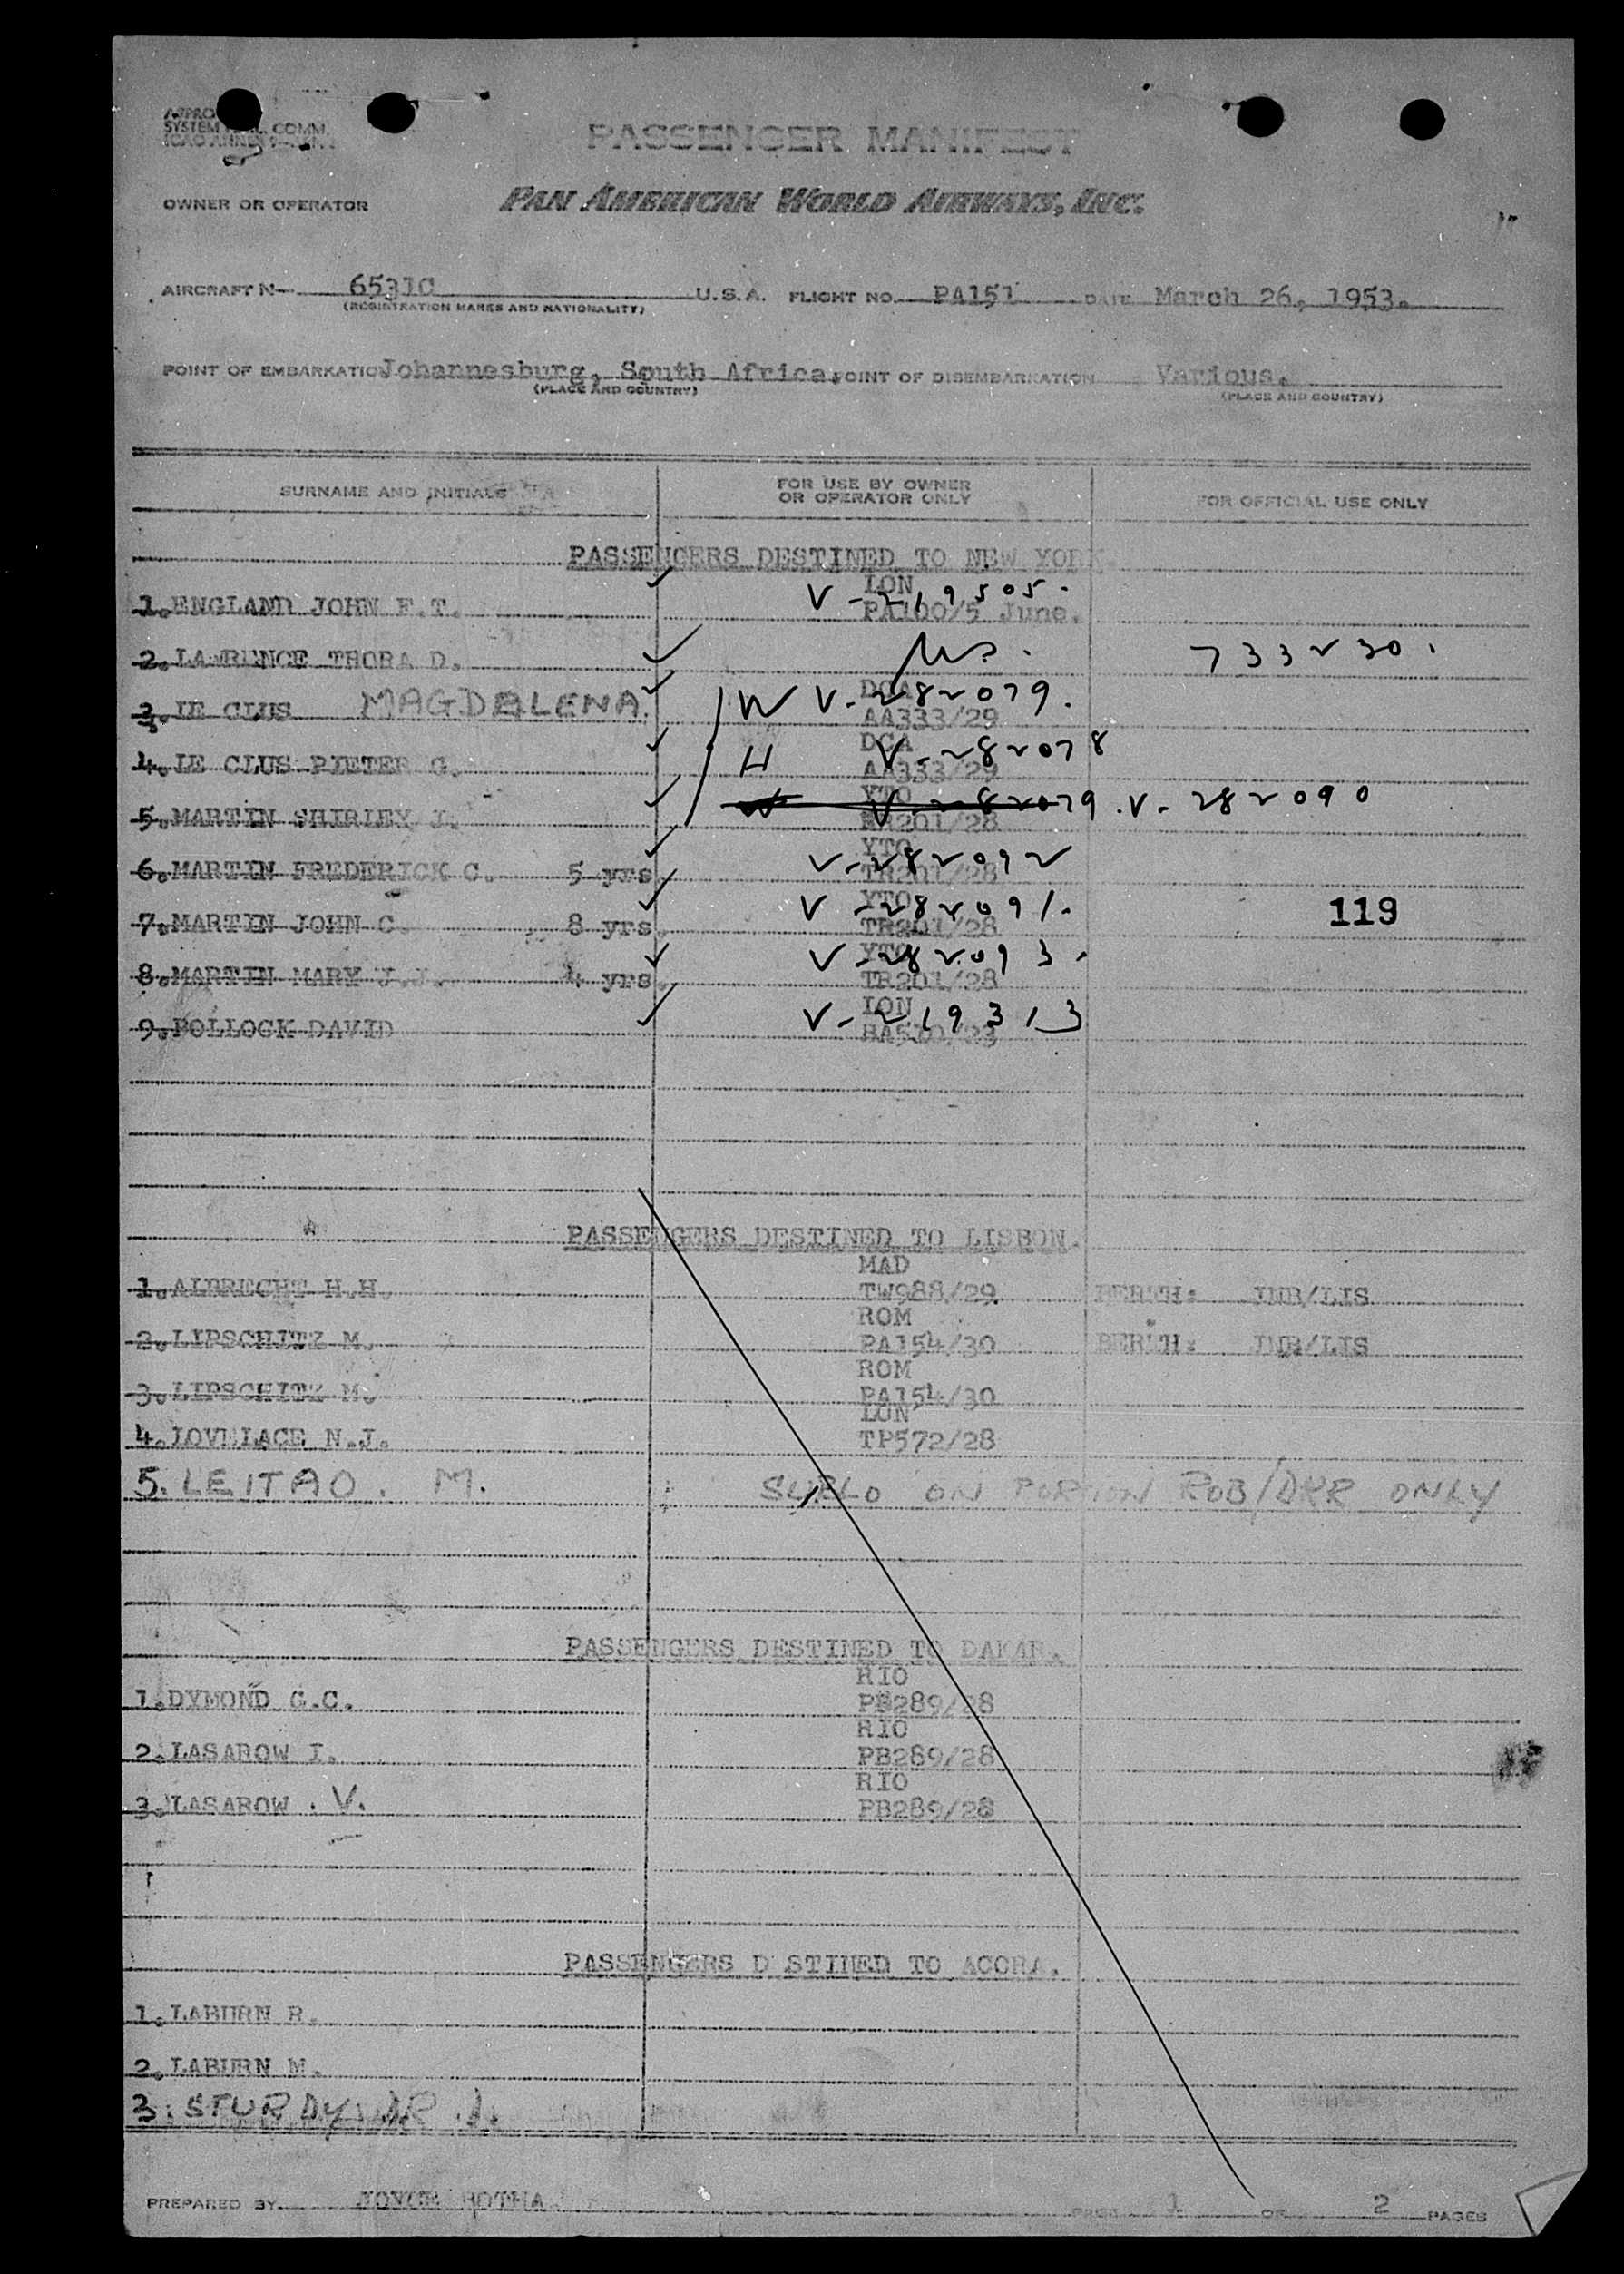 SYSTEM COMM.
PASSENGER MANIFEST
OWNER OR OPERATOR PAN AMERICAN WORLD AIRWAYS, INC.
AIRCRAFT N- 6531C U.S.A. FLIGHT NO. PA151 DATE March 26, 1953.
(REGISTRATION MARKS AND NATIONALITY)
POINT OF EMBARKATIO Johannesburg, South Africa. POINT OF DISEMBARKATION Various.
(PLACE AND COUNTRY) (PLACE AND COUNTRY)
SURNAME AND INITIALS FOR USE BY OWNER OR OPERATOR ONLY FOR OFFICIAL USE ONLY
PASSENGERS DESTINED TO NEW YORK
LON V-219505.
1. ENGLAND JOHN F.T. PA100/5 June.
2. LAWRENCE THORA D. 733230.
DCA W V-282079.
3. LE CLUS MAGDALENA. AA333/29
DCA H V-282078
4. LE CLUS PIETER G. AA333/29
YTO W V-282079. V-282090
5. MARTIN SHIRLEY J. TR201/28
YTO V-282092
6. MARTIN FREDERICK C. 5 yrs. TR201/28
YTO V-282091.
7. MARTIN JOHN C. 8 yrs. TR201/28 119
YTO V-282093.
8. MARTIN MARY J.J. 4 yrs. TR201/28
LON V-219313
9. POLLOCK DAVID BA510/23
PASSENGERS DESTINED TO LISBON.
MAD
1. ALBRECHT H.H. TW988/29 BERTH: JNB/LIS
ROM
2. LIPSCHITZ M. PA154/30 BERTH: JNB/LIS
ROM
3. LIPSCHITZ M. PA154/30
LON
4. LOVELACE N.J. TP572/28
5. LEITAO. M. SUBLO ON PORTION ROB/DKR ONLY
PASSENGERS DESTINED TO DAKAR.
RIO
1. DYMOND G.C. PB289/28
RIO
2. LASAROW I. PB289/28
RIO
3. LASAROW . V. PB289/28
PASSENGERS D STINED TO ACCRA.
1. LABURN R.
2. LABURN M.
3. STURDY DR. A.
PREPARED BY JOYCE BOTHA PAGE 1 OF 2 PAGES